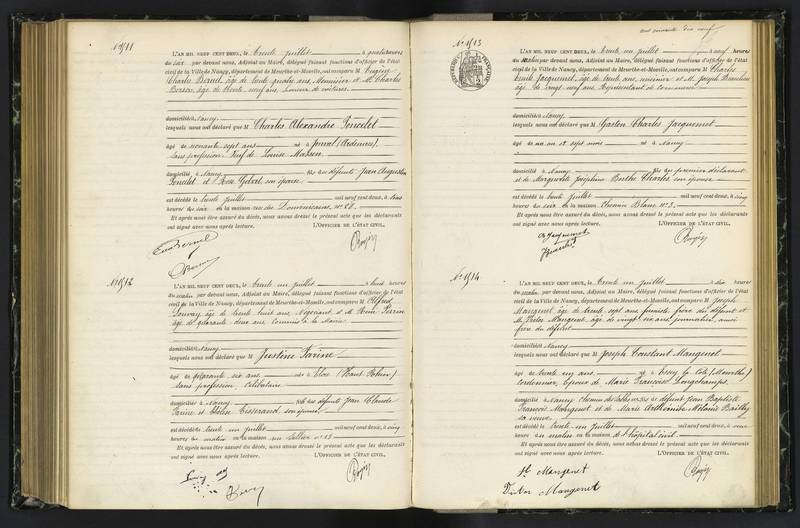 1511
L'AN MIL NEUF CENT DEUX, le trente juillet à quatre heures
du soir par devant nous, Adjoint au Maire, délégué faisant fonctions d'officier de l'état
civil de la Ville de Nancy, département de Meurthe-et-Moselle, ont comparu M Eugène
Charles Bernel, âgé de trente quatre ans, Menuisier et M Charles
âgé de trente neuf ans, loueur de voitures
domiciliés à Nancy
lesquels nous ont déclaré que M Charles Alexandre Poncelet
âgé de soixante sept ans né à Joncal (Ardennes)
sans profession Veuf de Louise Masson
domicilié à Nancy fils des défunts Jean Augustin
Poncelet et Rose Gibert son épouse
est décédé le trente juillet mil neuf cent deux, à
heures du soir en la maison rue des Dominicains n° 28
Et après nous être assuré du décès, nous avons dressé le présent acte que les déclarants
ont signé avec nous après lecture. L'OFFICIER DE L'ÉTAT CIVIL.
N° 1512
L'AN MIL NEUF CENT DEUX, le trente un juillet à huit heures
du matin par devant nous, Adjoint au Maire, délégué faisant fonctions d'officier de l'état
civil de la Ville de Nancy, département de Meurthe-et-Moselle, ont comparu M Alfred
âgé de trente huit ans, Négociant et M
âgé de quarante deux ans Commis à la Mairie
domiciliés à Nancy
lesquels nous ont déclaré que M Justine Farine
âgée de quarante six ans née à
sans profession Célibataire
domiciliée à Nancy fille des défunts Jean Claude
Farine et Hélène Tisserand, son épouse
est décédée le trente un juillet mil neuf cent deux, à cinq
heures du matin en la maison
Et après nous être assuré du décès, nous avons dressé le présent acte que les déclarants
ont signé avec nous après lecture. L'OFFICIER DE L'ÉTAT CIVIL.
N° 1513
L'AN MIL NEUF CENT DEUX, le trente un juillet à neuf heures
du matin par devant nous, Adjoint au Maire, délégué faisant fonctions d'officier de l'état
civil de la Ville de Nancy, département de Meurthe-et-Moselle, ont comparu M Charles
Emile Jacquemet, âgé de trente ans, et M Joseph
âgé de vingt neuf ans Représentant de commerce
domiciliés à Nancy
lesquels nous ont déclaré que M Gaston Charles Jacquemet
âgé de un an et sept mois né à Nancy
domicilié à Nancy fils du premier déclarant
et de Marguerite Joséphine Berthe Charles, son épouse
est décédé le trente juillet mil neuf cent deux, à cinq
heures du soir en la maison Chemin Blanc n° 3
Et après nous être assuré du décès, nous avons dressé le présent acte que les déclarants
ont signé avec nous après lecture. L'OFFICIER DE L'ÉTAT CIVIL.
Jacquemet
N° 1514
L'AN MIL NEUF CENT DEUX, le trente un juillet à dix heures
du matin par devant nous, Adjoint au Maire, délégué faisant fonctions d'officier de l'état
civil de la Ville de Nancy, département de Meurthe-et-Moselle, ont comparu M Joseph
Mangenet, âgé de trente sept ans, frère du défunt et
M Victor Mangenet, âgé de vingt six ans, journalier, aussi
frère du défunt
domiciliés à Nancy
lesquels nous ont déclaré que M Joseph Constant Mangenet
âgé de trente un ans né à Essey la Côte (Meurthe)
cordonnier, époux de Marie Françoise Longchamps
domicilié à Nancy chemin des Sables fils de défunt Jean Baptiste
François Mangenet et de Marie Mélanie Bailly
sa veuve
est décédé le trente un juillet mil neuf cent deux, à une
heure du matin en la maison à l'hôpital civil
Et après nous être assuré du décès, nous avons dressé le présent acte que les déclarants
ont signé avec nous après lecture. L'OFFICIER DE L'ÉTAT CIVIL.
Mangenet
Victor Mangenet